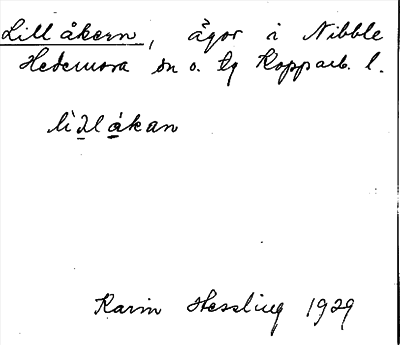 Lillåkern, ågor i Nibble
Hedemora sn o. tg Kopparb. l.
lìllåkan
Karin Hessling 1929